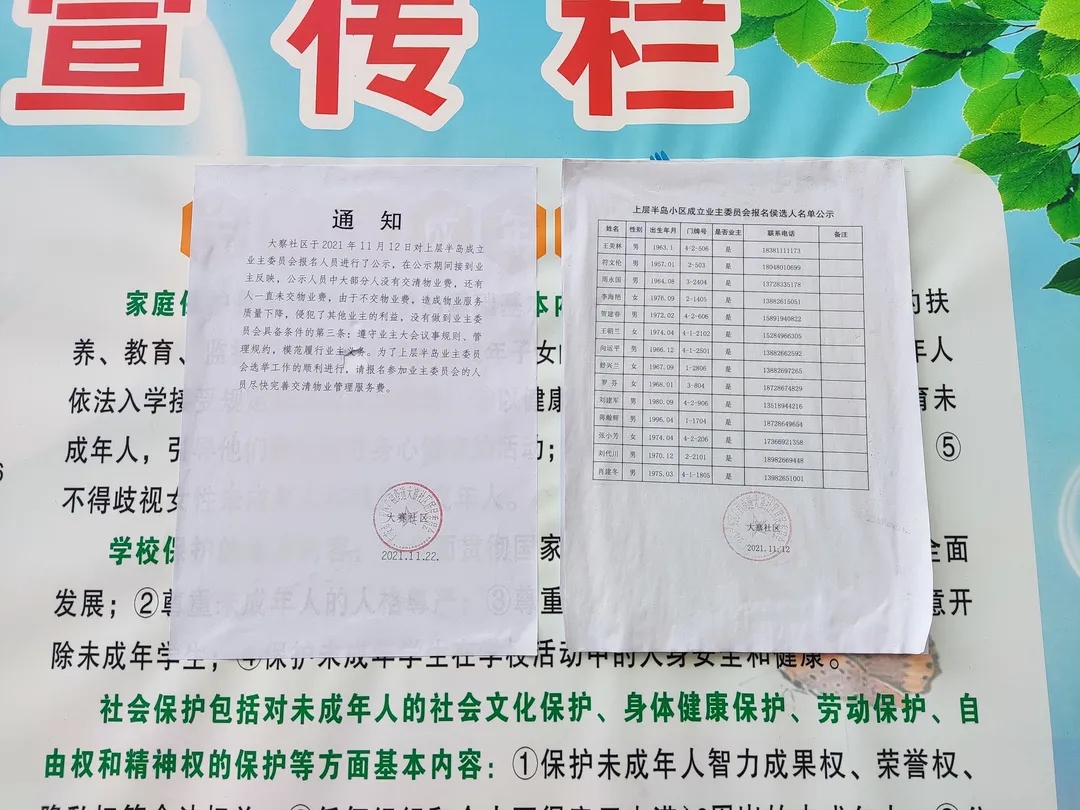 宣传栏
通 知
大寨社区于2021年11月12日对上层半岛成立
业主委员会报名人员进行了公示，在公示期间接到业
主反映，公示人员中大部分人没有交清物业费，还有
人一直未交物业费，由于不交物业费，造成物业服务
质量下降，侵犯了其他业主的利益，没有做到业主委
员会具备条件的第三条：遵守业主大会议事规则、管
理规约，模范履行业主义务。为了上层半岛业主委员
会选举工作的顺利进行，请报名参加业主委员会的人
员尽快完善交清物业管理服务费。
大寨社区
2021.11.22.
上层半岛小区成立业主委员会报名侯选人名单公示
姓名 性别 出生年月 门牌号 是否业主 联系电话 备注
王美林 男 1963.1 4-2-506 是 18381111173
符文伦 男 1957.01 2-503 是 18048010699
周永国 男 1964.08 3-2404 是 13728335178
李海艳 女 1976.09 2-1405 是 13882615051
贺建春 男 1972.02 4-2-606 是 15891940822
王朝兰 女 1974.04 4-1-2102 是 15284966305
向运平 男 1966.12 4-1-2501 是 13882662592
舒兴兰 女 1967.09 1-2806 是 13882697265
罗芬 女 1968.01 3-804 是 18728674829
刘建军 男 1980.09 4-2-906 是 13518944216
陈瀚辉 男 1996.04 1-1704 是 18728649654
张小芳 女 1974.04 4-2-206 是 17366921358
刘代川 男 1970.12 2-2101 是 18982669448
肖建冬 男 1975.03 4-1-1805 是 13982651001
大寨社区
2021.11.12
家庭保 本内 的扶
养、教育、 女 年人
依法入学接 健康 育未
成年人，引导他们 活动； ⑤
不得歧视女 年人。
学校保 贯彻国家 全面
发展；②尊重未成年人的人格尊严；③尊重 意开
除未成年学生；④保护未成年学生在学校活动中的人身安全和健康。
社会保护包括对未成年人的社会文化保护、身体健康保护、劳动保护、自
由权和精神权的保护等方面基本内容：①保护未成年人智力成果权、荣誉权、